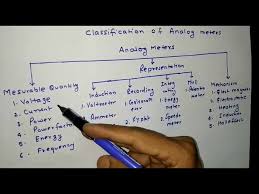 Classification of Analog meters
Analog Meters
Representation
Mesurable Quantity
1. Voltage
2. Current
3. Power
4. Powerfactor
5. Energy
6. Frequency
Induction
1. Voltmeter
2. Ammeter
Recording
1.
2.
Integ
rating
1. Energy
meter
2. Speedo
meter
Null
Mechanism
1.
2. Electrostatic
3. Heating
4. Induction
5. Hall effect